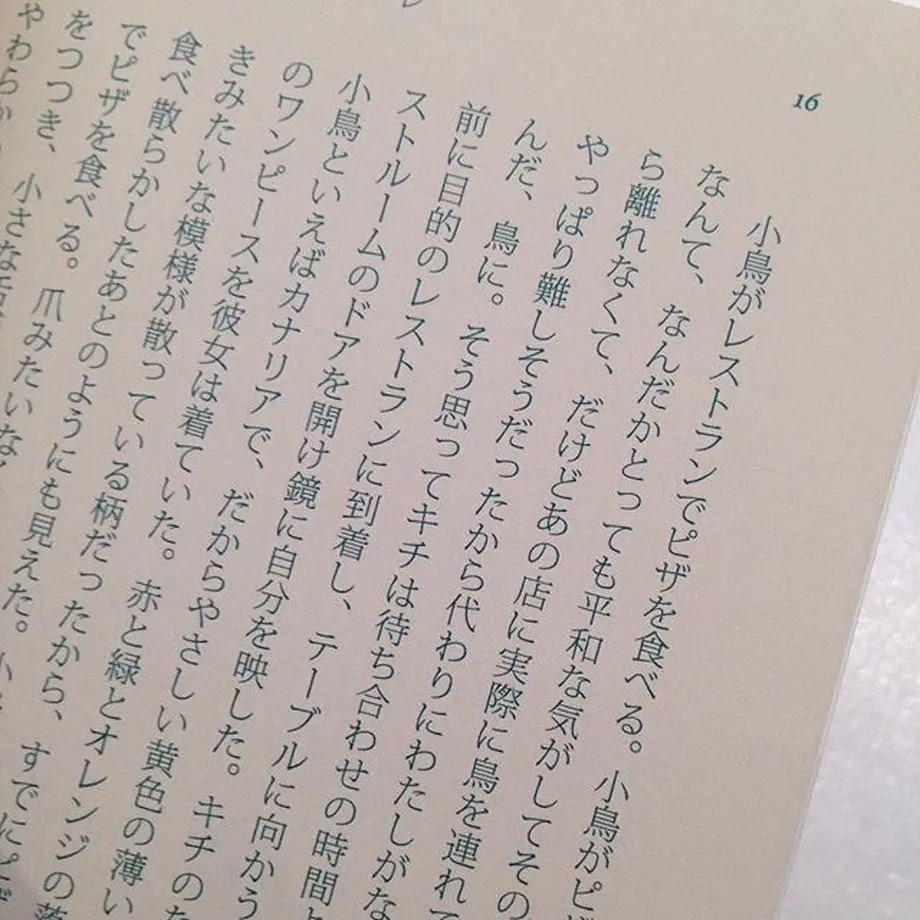 16
小鳥がレストランでピザを食べる。小鳥がピ
なんて、なんだかとっても平和な気がしてその
ら離れなくて、だけどあの店に実際に鳥を連れて
やっぱり難しそうだったから代わりにわたしがな
んだ、鳥に。そう思ってキチは待ち合わせの時間
前に目的のレストランに到着し、テーブルに向かう
ストルームのドアを開け鏡に自分を映した。キチのた
小鳥といえばカナリアで、だからやさしい黄色の薄い
のワンピースを彼女は着ていた。赤と緑とオレンジの落
きみたいな模様が散っている柄だったから、すでにピザ
食べ散らかしたあとのようにも見えた。
でピザを食べる。爪みたいな
をつつき、小さな
やわらか